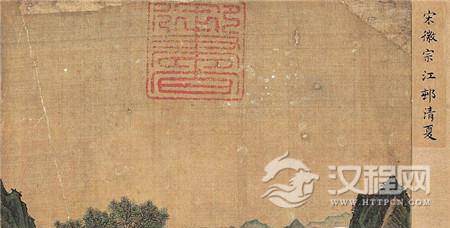 宋徽宗江邨清夏
汉程网
HTTPCN.COM